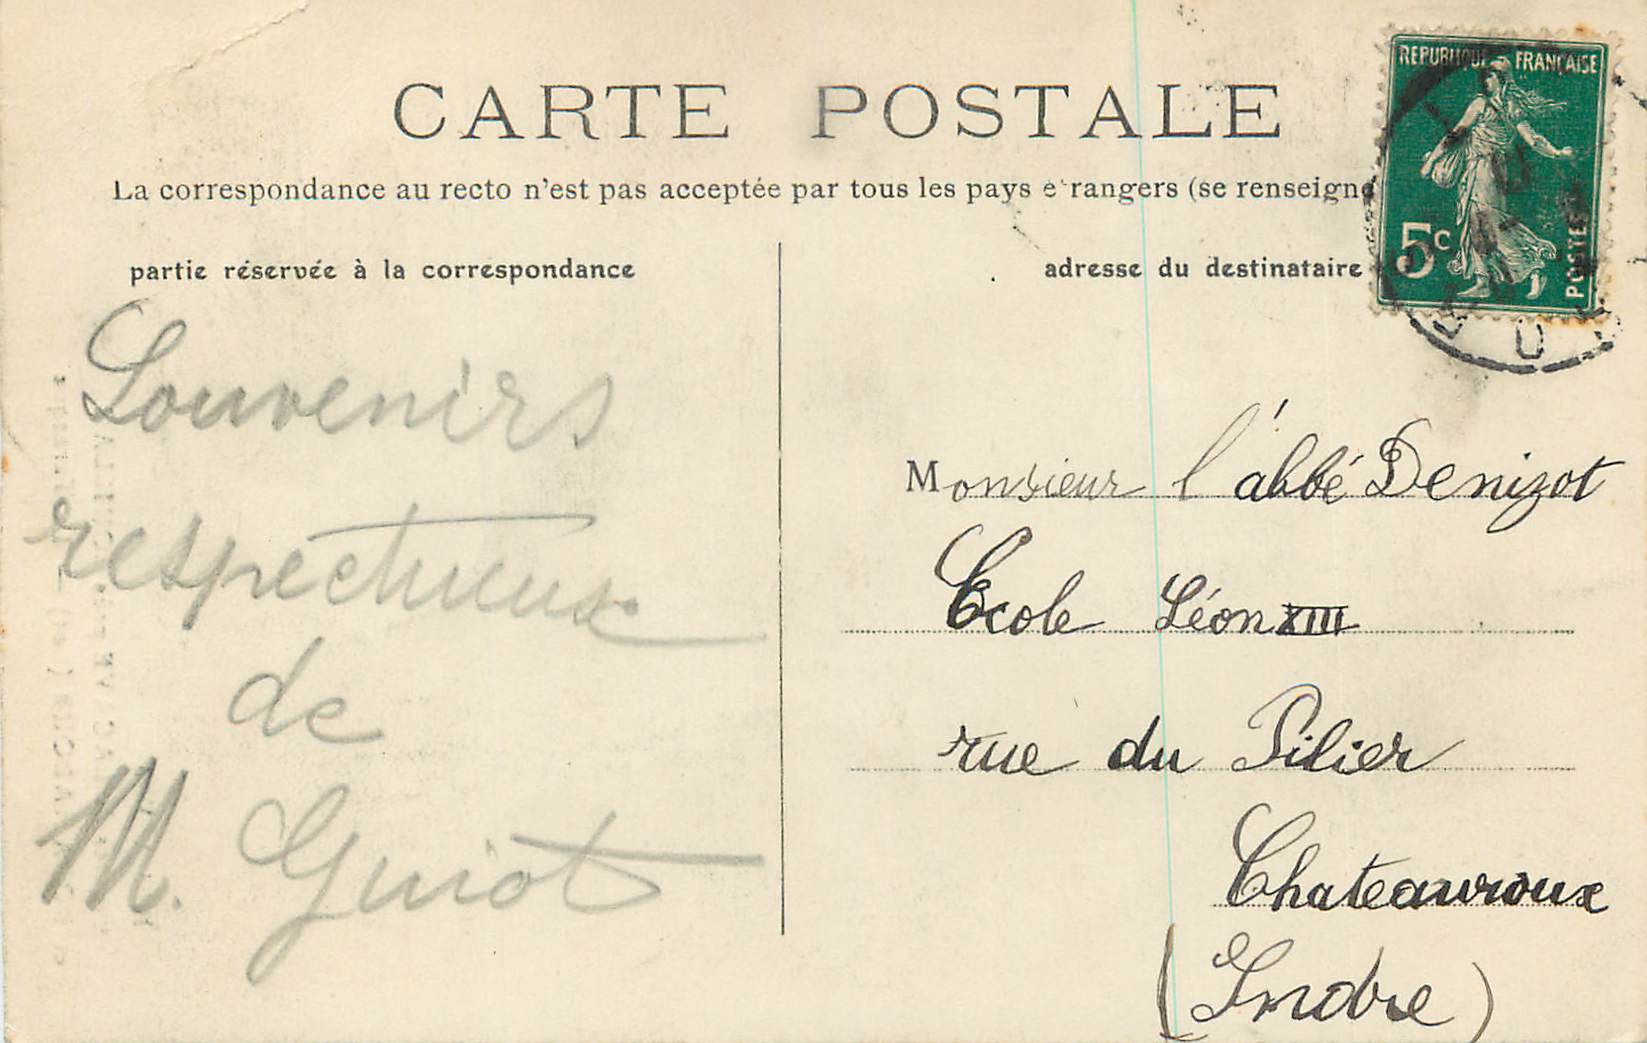 CARTE POSTALE
La correspondance au recto n'est pas acceptée par tous les pays étrangers (se renseigne
partie réservée à la correspondance
adresse du destinataire
REPUBLIQUE FRANÇAISE
5c
POSTES
Souvenirs
respectueux
de
M. Guiot
Monsieur l'abbé Denizot
École Léon XIII
rue du Pilier
Chateauroux
(Indre)